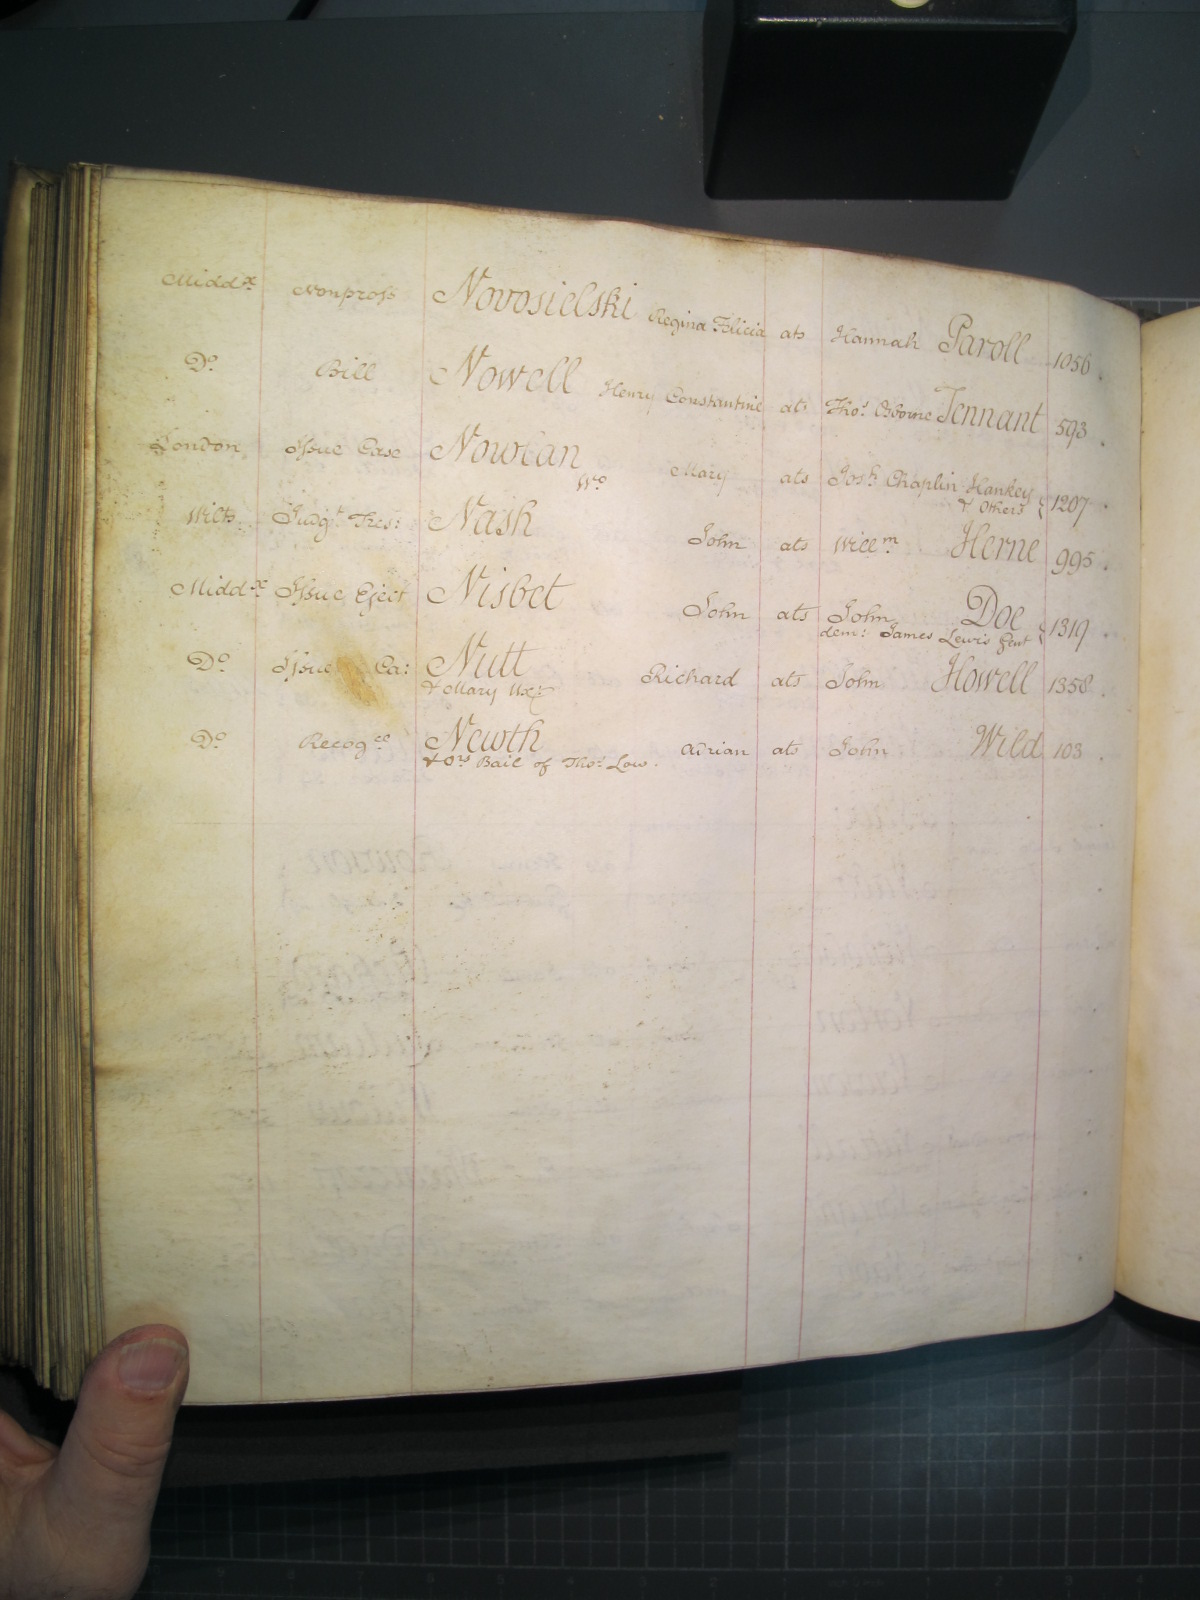 Middx Nonpross Novosielski Regina Felicia ats Hannah Paroll 1056.
Do Bill Nowell Henry Constantine ats Thos Osborne Tennant 593.
London Issue Case Nowlan Wo Mary ats Josh Chaplin Hankey & Others } 1207.
Wilts Judgt Tres: Nash John ats Willm Herne 995.
Middx Issue Eject Nisbet John ats John Doe 1319.
dem: James Lewis Gent }
Do Issue Ca: Nutt Richard ats John Howell 1358.
& Mary Ux:
Do Recogce Newth Adrian ats John Wild 103.
& Ors Bail of Thos Low.